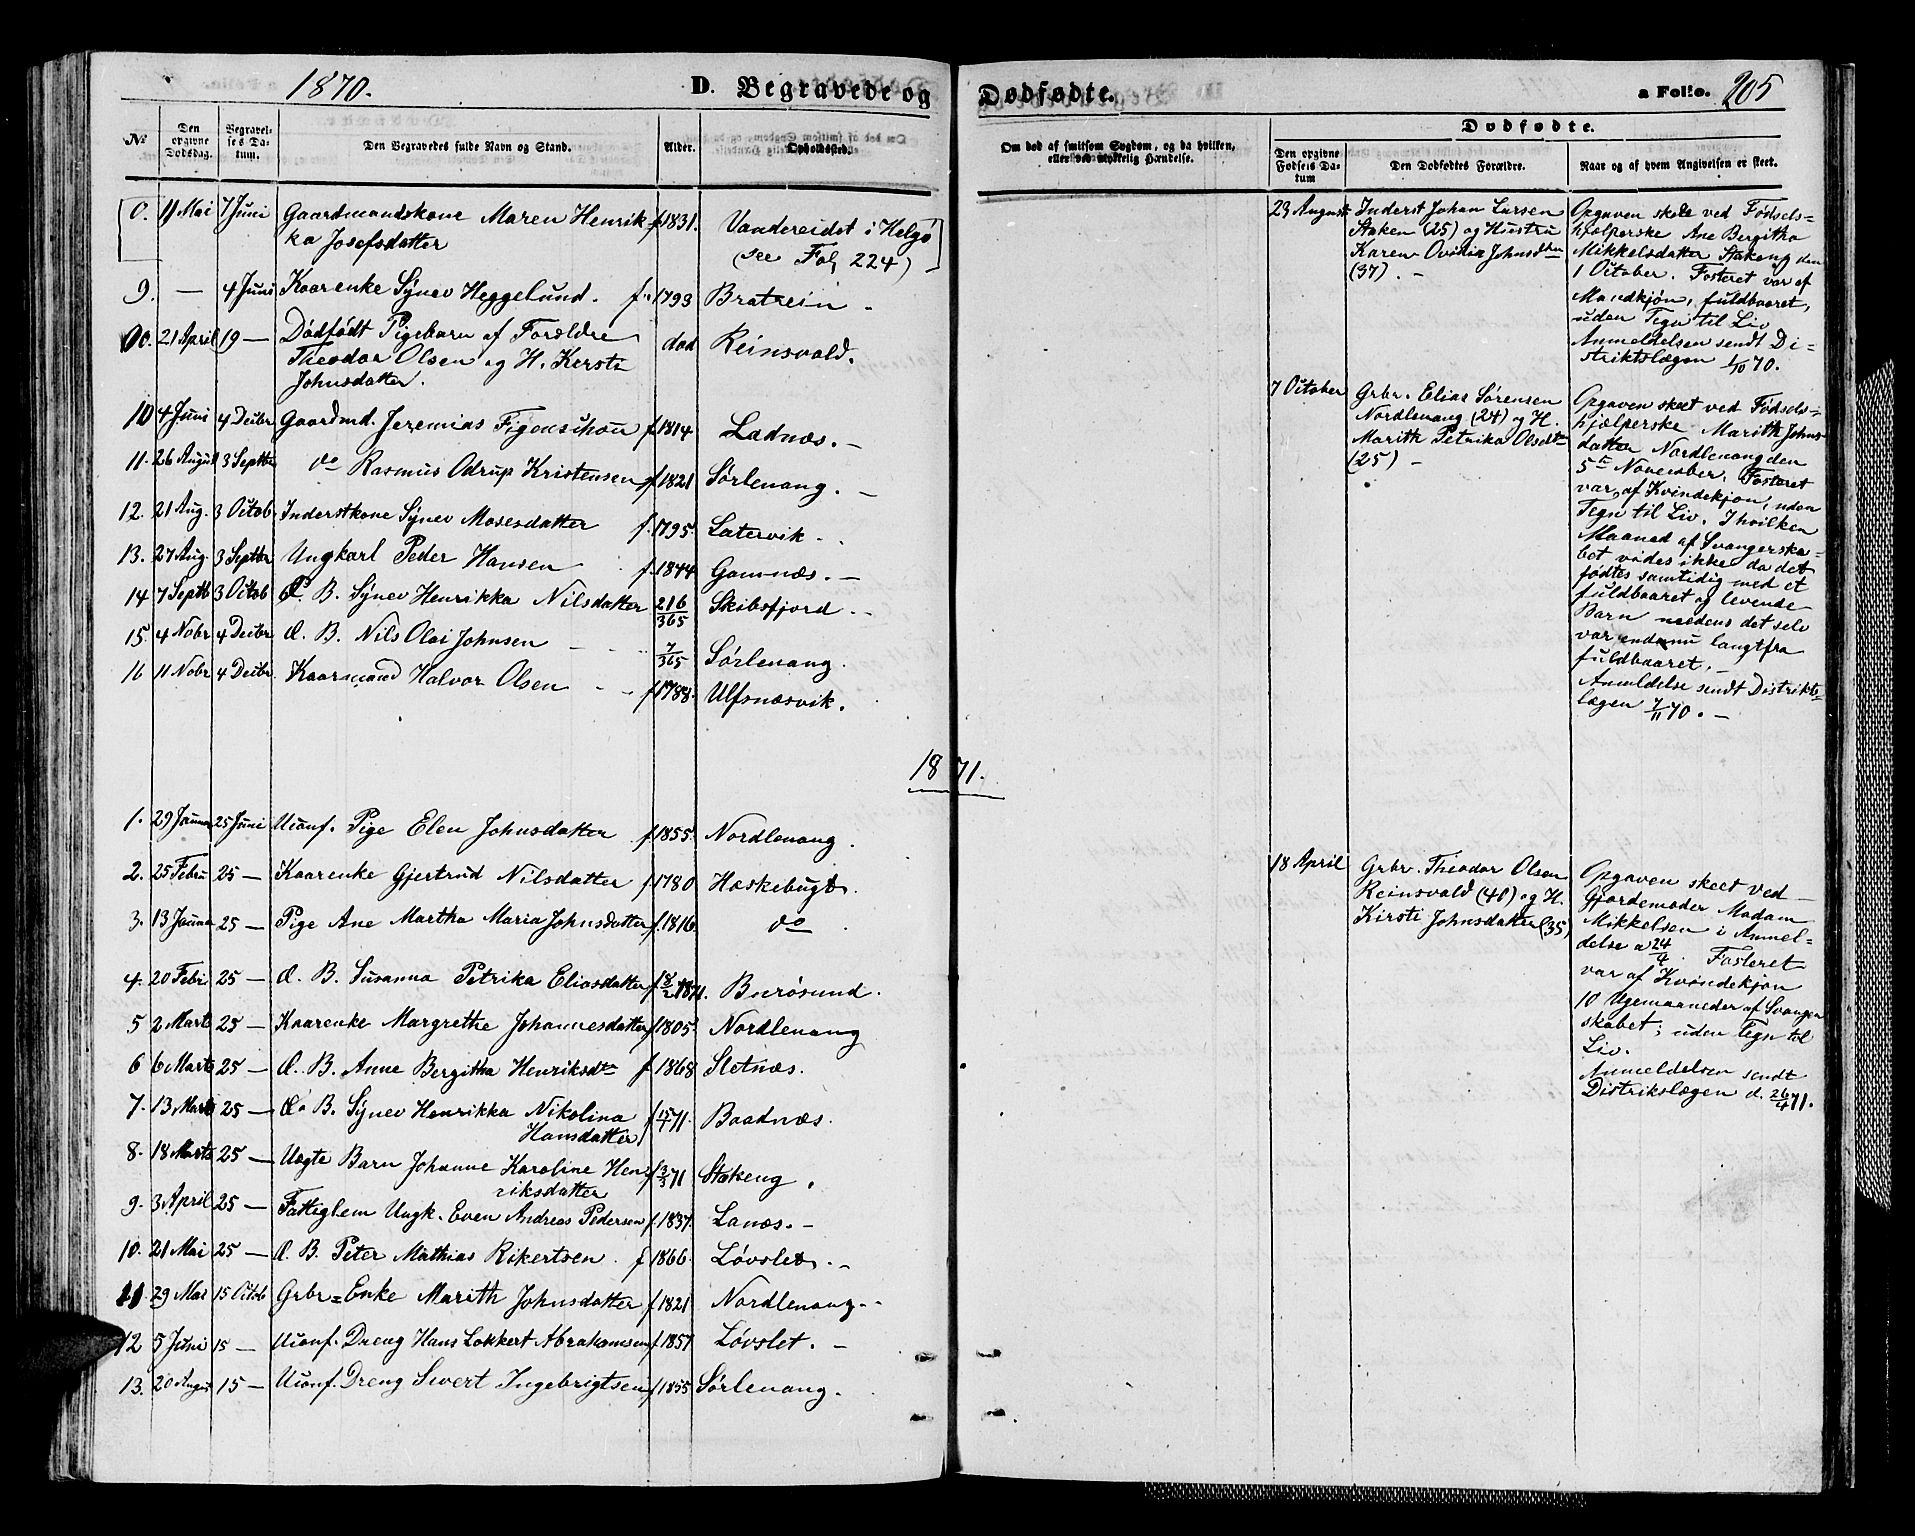 1870.
D. Begravede og
Dødfødte.
a Folio. 205
No
Den opgivne Dødsdag.
Begravelses Datum.
Den Begravedes fulde Navn og Stand.
Alder.
Opholdssted.
Om død af smitsom Sygdom, og da hvilken, eller ved ulykkelig Hændelse.
Dødfødte.
Den opgivne Fødsels Datum
Den Dødfødtes Forældre.
Naar og af hvem Angivelsen er skeet.
0. 11 Mai 7 Juni Gaardmandskone Maren Henrik- f 1831. Vandereidet i Helgø
ka Josefsdatter (see Fol 224)
9. — 4 Juni Kaarenke Synev Heggelund. f. 1793 Bratrein
00. 21 April 19 — Dødfødt Pigebarn af Forældre død Reinsvold.
Theodor Olsen og H. Kirsti
Johnsdatter.
10 4 Juni 4 Decbr Gaardmd. Jeremias Figenschou f. 1814 Ladnæs. —
11. 26 August 3 Septbr do Rasmus Odrup Kristensen f 1821 Sørlenang. —
12. 21 Aug. 3 Octob. Inderstkone Synev Mosesdatter f. 1795. Latervik.
13. 27 Aug. 3 Septbr Ungkarl Peder Hansen f. 1844 Gamnæs. —
14 7 Septb 3 Octob Æ. B. Synev Henrikka Nilsdatter 216/365 Skibsfjord
15. 4 Nobr 4 Decbr Æ. B. Nils Olai Johnsen 7/365 Sørlenang.
16 11 Nobr 4 Decbr. Kaarmand Halvor Olsen f 1788. Ulfsnæsvik.
1871.
1. 29 Janua 25 Juni Uconf. Pige Elen Johnsdatter f. 1855. Nordlenang.
2. 25 Febru 25 — Kaarenke Gjertrud Nilsdatter f 1780 Hæskebugt.
3. 13 Janua 25 — Pige Ane Martha Maria Johnsdatter f. 1816. do
4. 20 Febr 25 — Æ. B. Susanna Petrika Eliasdatter f 18/2 1871. Burøsund.
5 2 Marts 25 — Kaarenke Margrethe Johannesdatter f 1805 Nordlenang
6 6 Marts 25 — Æ. B. Anne Bergitha Henriksdtr f 1868 Sletnæs.
7. 13 Marts 25 — Æ. B. Synev Henrikka Nikolina f 15/1 71. Baadnæs.
Hansdatter
8. 18 Marts 25 — Uægte Barn Johanne Karoline Hen- f 3/3 71 Stakeng.
riksdatter
9. 3 April 25 — Fattiglem Ungk. Even Andreas Pedersen f. 1837. Lanæs. —
10. 21 Mai 25 — Æ. B. Peter Mathias Rikertsen. f 1866. Løvslet. —
11. 29 Mai 15 Octob Grbr=Enke Marith Johnsdatter f 1821 Nordlenang.
12 5 Juni 15 — Uconf. Dreng Hans Lokkert Abrahamsen f 1857 Løvslet. —
13. 20 August 15 — Uconf. Dreng Sivert Ingebrigtsen f 1855 Sørlenang.
23 August Inderst Johan Larsen
Staken (25) og Hustru
Karen Ovidia Johnsdtr
(37). —
Opgaven skete ved Fødsels=
hjælperske Ane Bergitha
Mikkelsdatter Stakeng den
1 October. Fosteret var af
Mandkjøn, fuldbaaret,
uden Tegn til Liv
Anmeldelsen sendt Di-
striktslægen 1/10 70.
7 October Grbr. Elias Sørensen
Nordlenang (24) og H.
Marith Petrika Olsdtr
(25) —
Opgaven skeet ved Fødsels=
hjælperske Marith Johns-
datter Nordlenang den
5te November. Fosteret
var af Kvindekjøn, uden
Tegn til Liv. I hvilken
Maaned af Svangerska-
bet vides ikke da det
fødtes samtidig med et
fuldbaaret og levende
Barn medens det selv
var endnu langtfra
fuldbaaret. —
Anmeldelse sendt Distrikts=
lægen 7/11 70. —
18 April Grbr. Theodor Olsen
Reinsvold (40) og H.
Kirsti Johnsdatter (35)
Opgaven skeet ved
Gjordemoder Madam
Mikkelsen i Anmel-
delse a 24/4. Fosteret
var af Kvindekjøn
10 Ugemaaneder af Svanger
skabet; uden Tegn til
Liv.
Anmeldelsen sendt
Distrikslægen d. 26/4 71.